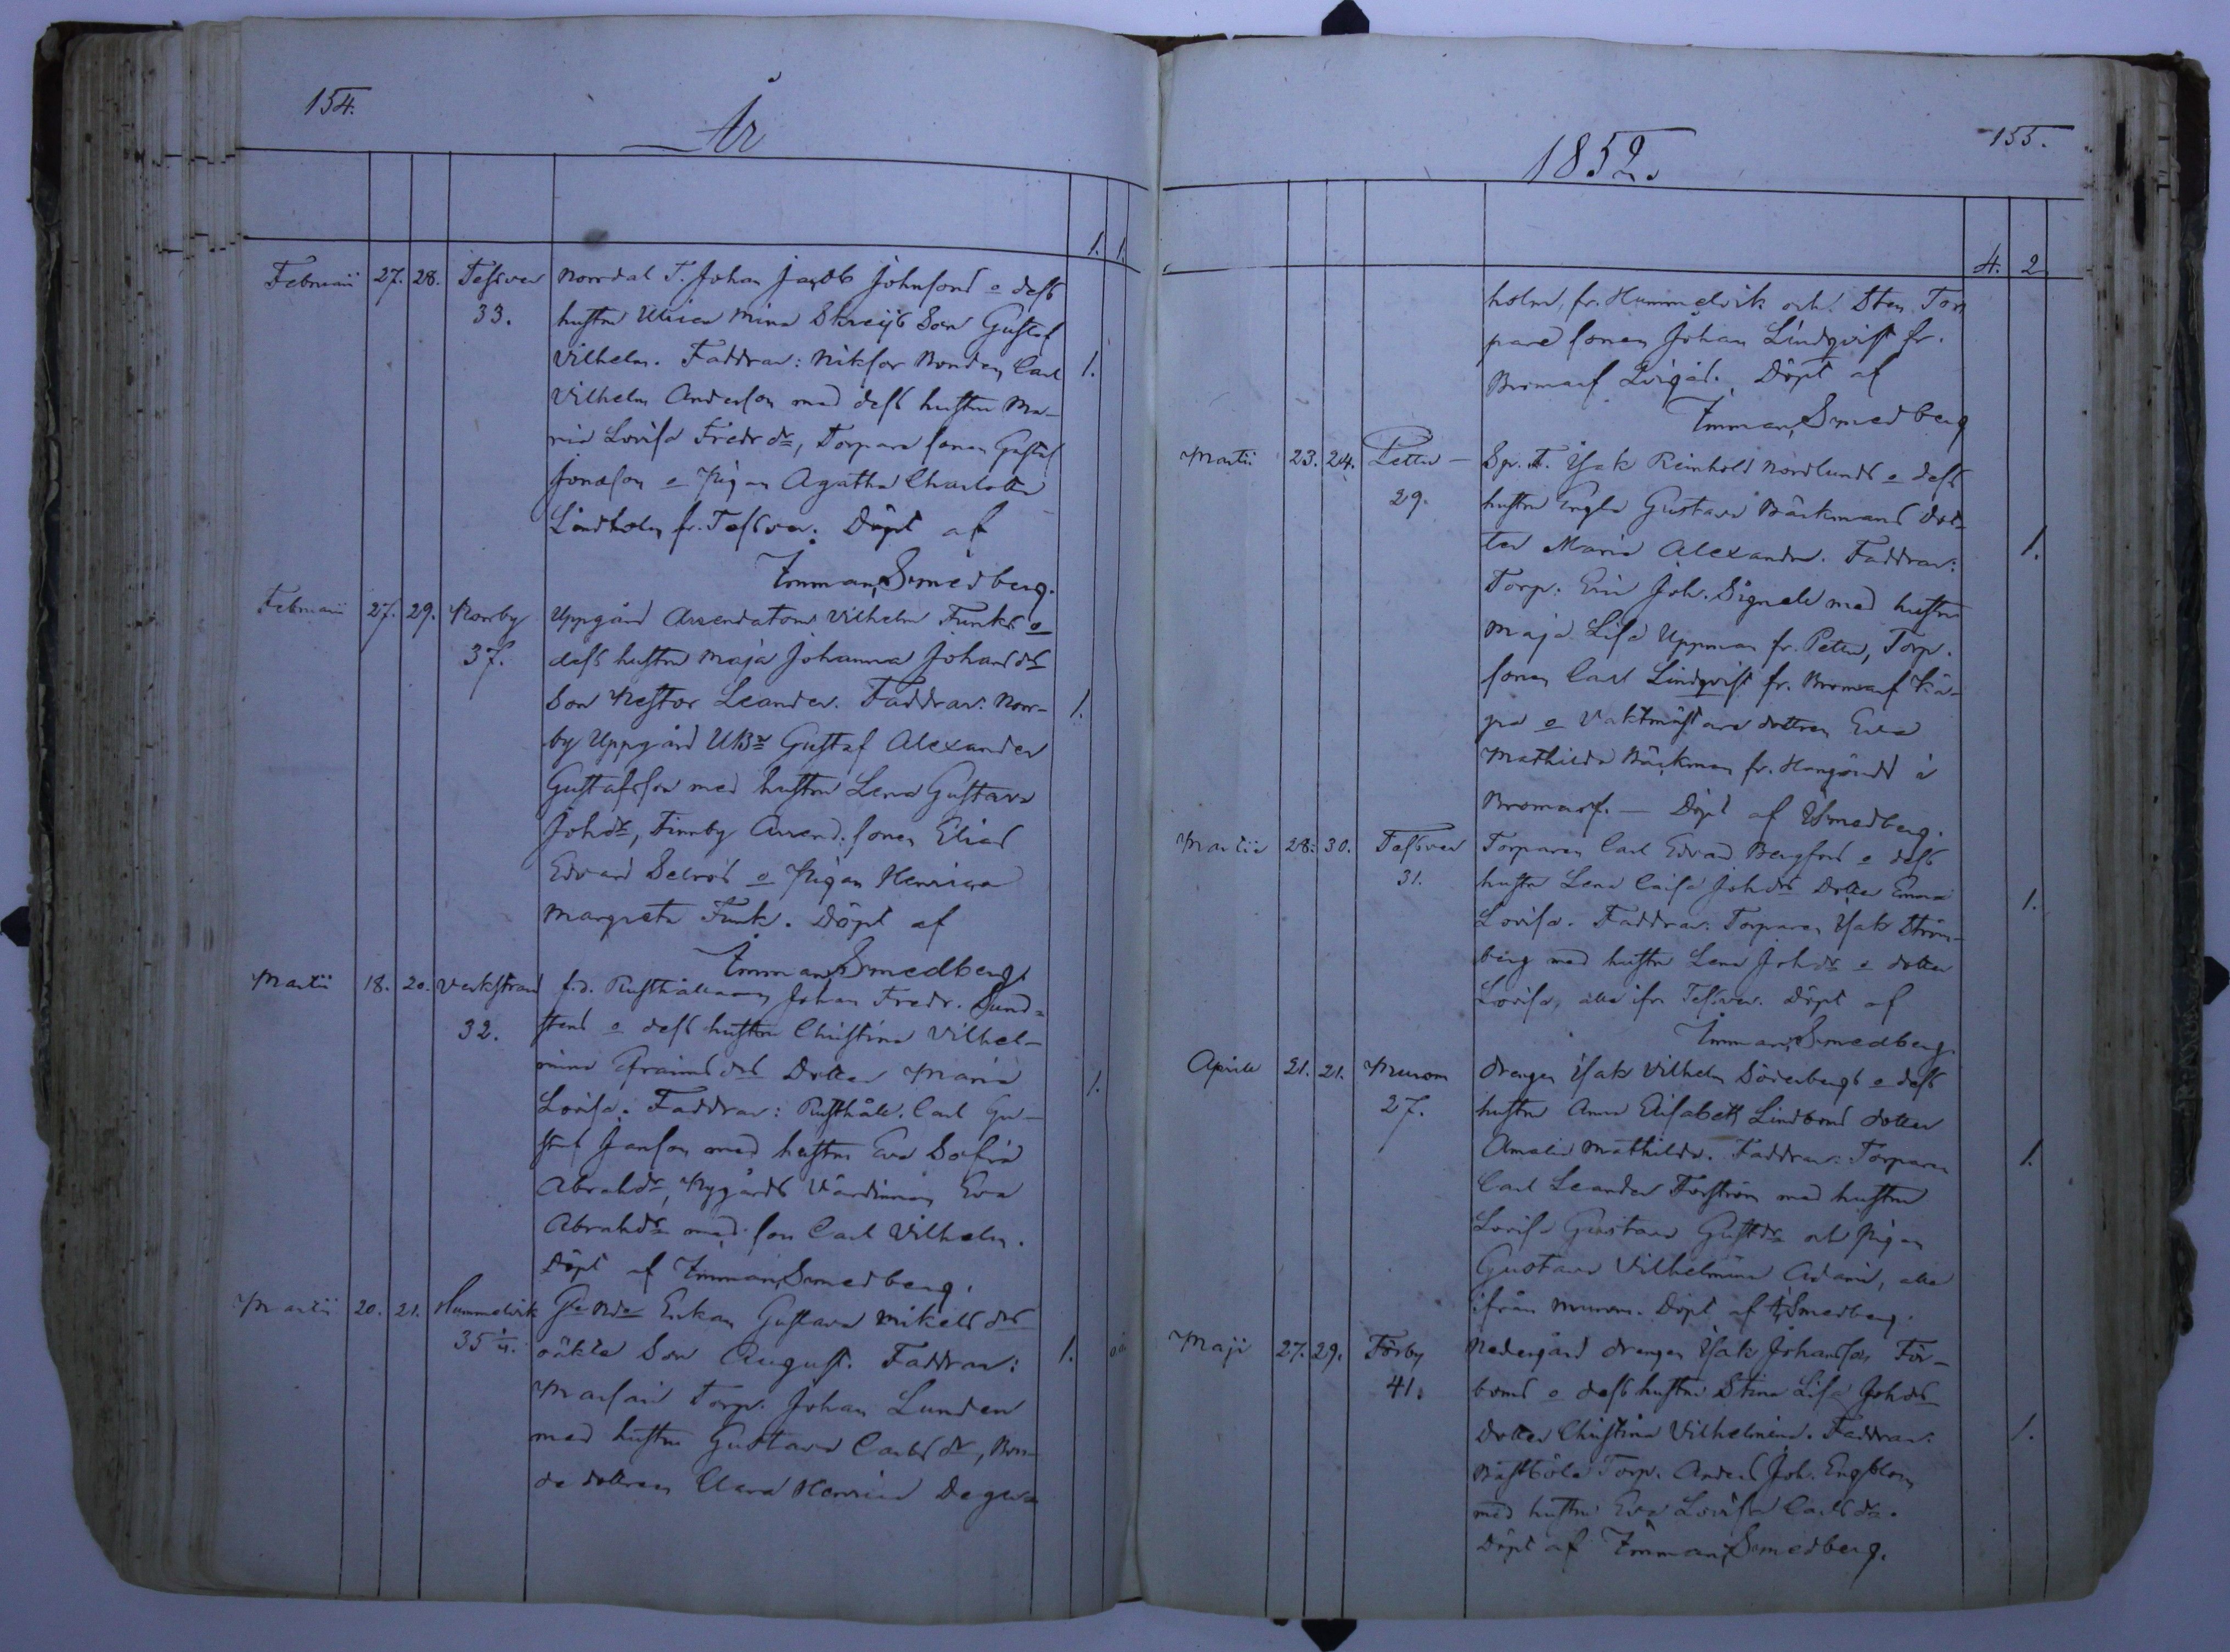 154.
År
1. 1.
Februarii 27. 28. Tessver Norrdal T. Johan Jacob Johnsons o dess
33. hustru Ulrica Mina Skreijs Son Gustaf
Vilhelm. Faddrar: Niksor Bonden Carl 1.
Vilhelm Anderson med dess hustru Ma-
ria Lovisa Fredr dr, Torpare sonen Gustaf
Jonason o Pigan Agatha Charlotta
Lindholm fr. Tessver. Döpt af
Imman. Smedberg.
Februarii 27. 29. Norrby Uppgård Arrendatorn Vilhelm Funks o
37. dess hustru Maja Johanna Johans ds
Son Nestor Leander. Faddrar: Norr- 1.
by Uppgård Gustaf Alexander
Gustafsson med hustru Lena Gustava
Joh dr, Finnby Arrend. sonen Elias
Edvard o Pigan Henrica
Margreta Funk. Döpt af
Imman. Smedberg.
Martii 18. 20. Verkstrand f.d. Rusthållaren Johan Fredr. Sund-
32. stens o dess hustru Christina Vilhel-
mina Efraims ds Dotter Maria 1.
Lovisa. Faddrar: Rusthåll. Carl Gu-
staf Janson med hustru Eva Sofia
Abrah dr, Nygårds Värdinnan Eva
Abrah dr med son Carl Vilhelm.
Döpt af Imman. Smedberg.
Martii 20. 21. Hummelvik Enkan Gustava Mikels ds
35 oäkta Son August. Faddrar: 1.
Torp. Johan Lunden
med hustru Gustava Carls dr, Bon-
de dottren Clara Henrica Deger-
1852.
155.
4. 2
holm, fr. Hummelvik och Tor
pare sonen Johan Lindqvist fr.
Bromarf Döpt af
Imman. Smedberg
Martii 23. 24. Petter Sp. T. Isak Reinhold Nordlunds o dess
29. hustru Engla Gustava Bäckmans dot-
ter Maria Alexandra. Faddrar: 1.
Torp. Eric Joh. Signell med hustru
Maja Lisa Uppman fr. Petter, Torp.
sonen Carl Lindqvist fr. Bromarf
o Vaktmästare dottren Eva
Mathilda Bäckman fr. Hangöudd i
Bromarf. — Döpt af Smedberg.
Martii 28. 30. Tessver Torparen Carl Edvard Bergfors o dess
31. hustru Lena Caisa Joh ds Dotter Emma 1.
Lovisa. Faddrar: Torparen Isak Ström-
berg med hustru Lena Joh dr o dotter
Lovisa, alla ifr. Tessver. Döpt af
Imman. Smedberg.
Aprill 21. 21. Murom Drengen Isak Vilhelm Söderbergs o dess
27. hustru Anna Elisabeth Lindboms dotter
Amalia Mathilda. Faddrar: Torparen 1.
Carl Leander Forström med hustru
Lovisa Gustava Gust dr och Pigan
Gustava Vilhelmina Adami, alla
ifrån Murom. Döpt af I. Smedberg.
Maji 27. 29. Förby Nedergård drengen Isak Johansson För-
41. boms o dess hustru Stina Lisa Joh ds
Dotter Christina Vilhelmina. Faddrar: 1.
Bästböle Torp. Anders Joh. Engblom
med hustru Eva Lovisa Carls dr.
Döpt af Imman. Smedberg.